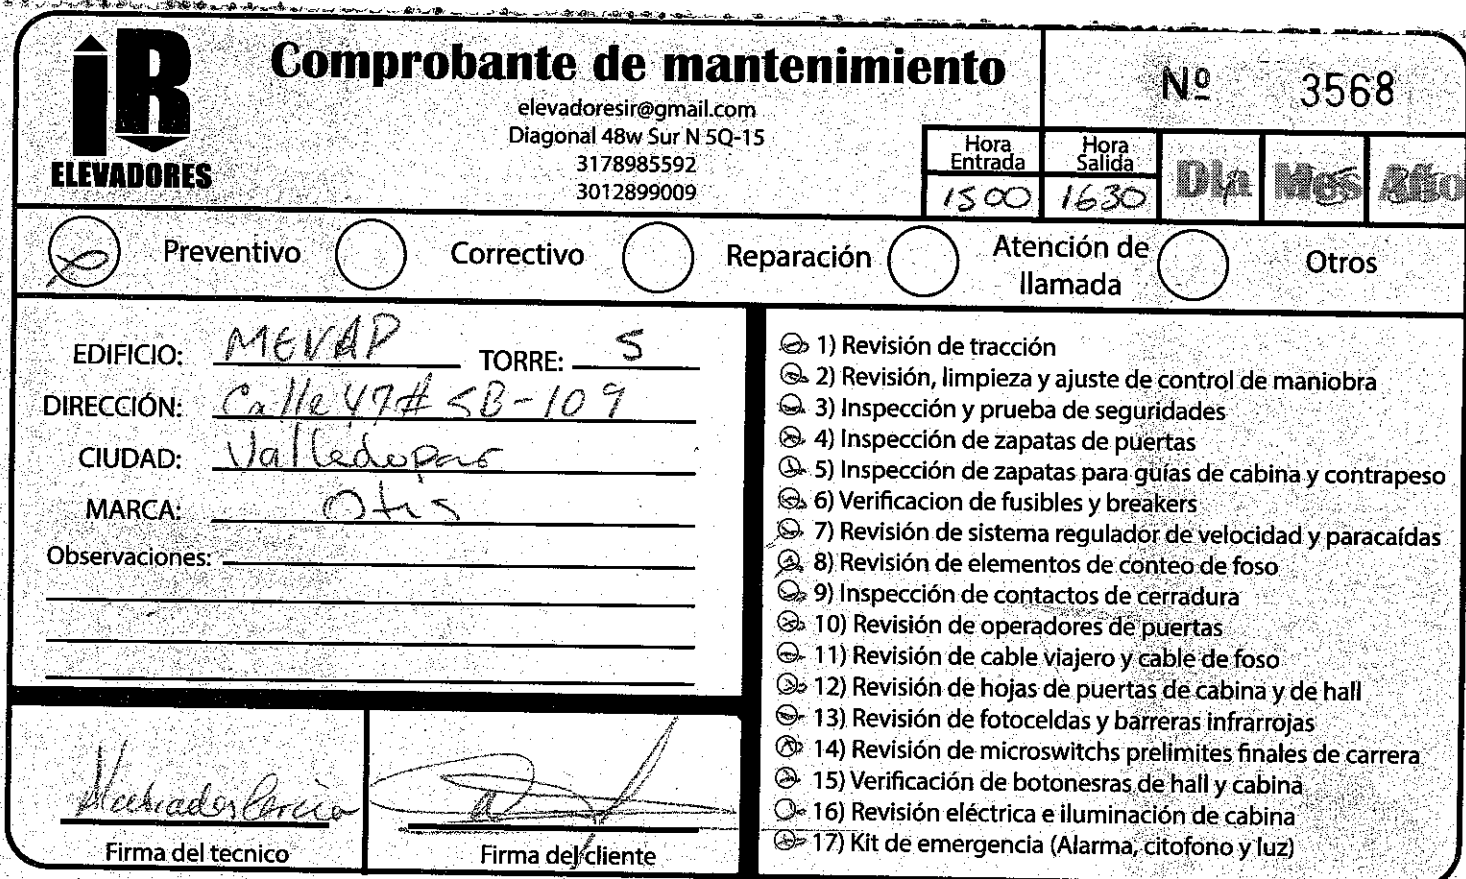 iR
ELEVADORES
Comprobante de mantenimiento
elevadoresir@gmail.com
Diagonal 48w Sur N 5Q-15
3178985592
3012899009
Nº 3568
Hora Entrada
Hora Salida
Día Mes Año
1500
1630
Preventivo
Correctivo
Reparación
Atención de llamada
Otros
EDIFICIO: MEVAP TORRE: 5
DIRECCIÓN: Calle 47# 5B-109
CIUDAD: Valledupar
MARCA: Otis
Observaciones:
1) Revisión de tracción
2) Revisión, limpieza y ajuste de control de maniobra
3) Inspección y prueba de seguridades
4) Inspección de zapatas de puertas
5) Inspección de zapatas para guías de cabina y contrapeso
6) Verificacion de fusibles y breakers
7) Revisión de sistema regulador de velocidad y paracaídas
8) Revisión de elementos de conteo de foso
9) Inspección de contactos de cerradura
10) Revisión de operadores de puertas
11) Revisión de cable viajero y cable de foso
12) Revisión de hojas de puertas de cabina y de hall
13) Revisión de fotoceldas y barreras infrarrojas
14) Revisión de microswitchs prelimites finales de carrera
15) Verificación de botonesras de hall y cabina
16) Revisión eléctrica e iluminación de cabina
17) Kit de emergencia (Alarma, citofono y luz)
Firma del tecnico
Firma del cliente